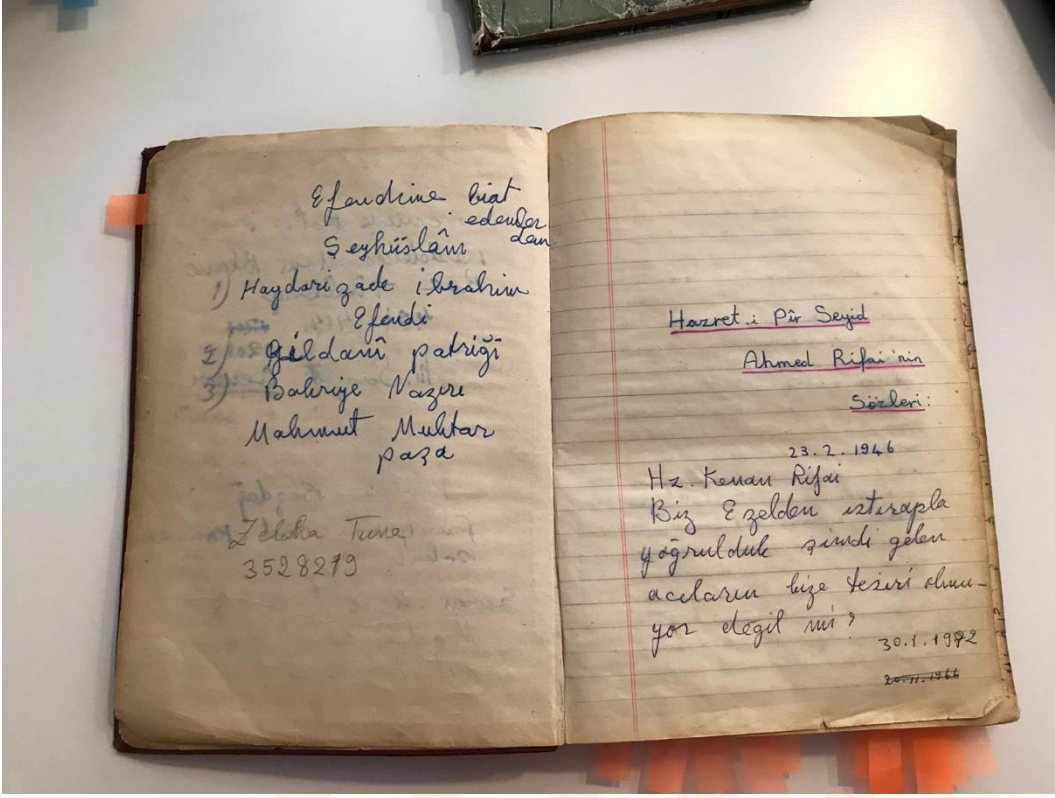 Efendime biat
edenler
den
Şeyhüislâm
1) Haydarizade ibrahim
Efendi
2) Gildanî patriği
3) Bahriye Nazırı
Mahmut Muhtar
paşa
Zeliha Tuna
3528219
Hazret-i Pîr Seyid
Ahmed Rifai'nin
Sözleri:
23.2.1946
Hz. Kenan Rifai
Biz Ezelden ıztırapla
yoğrulduk şimdi gelen
acıların bize tesiri olmu-
yor değil mi?
30.1.1992